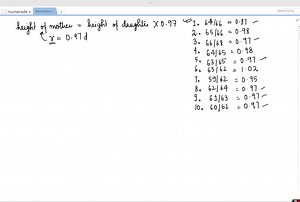 numerade
height of mother = height of daughter × 0.97
x = 0.97 d
1. 64/66 = 0.97
2. 65/66 = 0.98
3. 66/68 = 0.97
4. 64/65 = 0.98
5. 63/65 = 0.97
6. 63/62 = 1.02
7. 59/62 = 0.95
8. 62/64 = 0.97
9. 61/63 = 0.97
10. 60/62 = 0.97